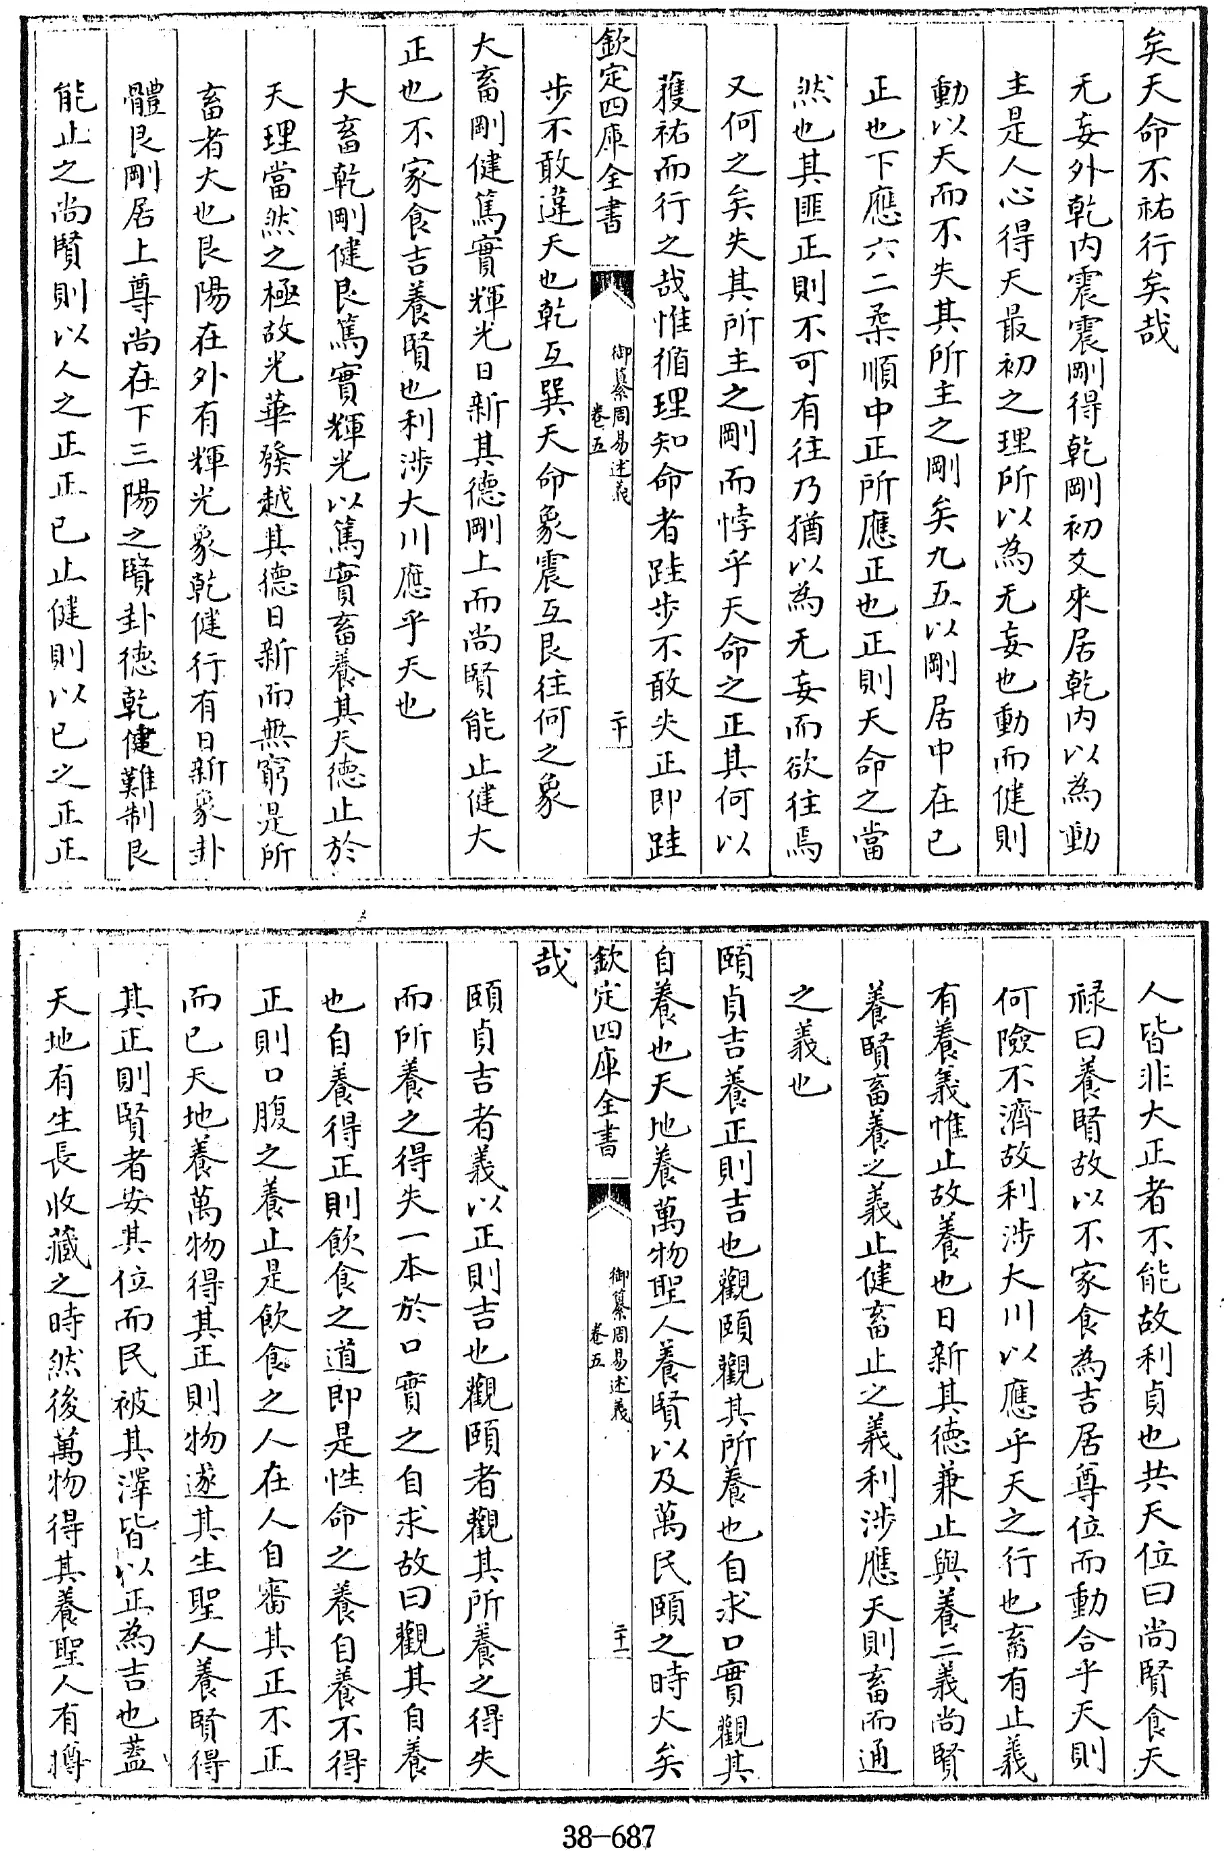 矣天命不祐行矣哉
无妄外乾内震震剛得乾剛初爻來居乾内以為動
主是人心得天最初之理所以為无妄也動而健則
動以天而不失其所主之剛矣九五以剛居中在已
正也下應六二柔順中正所應正也正則天命之當
然也其匪正則不可有往乃猶以為无妄而欲往焉
又何之矣失其所主之剛而悖乎天命之正其何以
獲祐而行之哉惟循理知命者跬步不敢失正即跬
欽定四庫全書
御纂周易述義
卷五
二十
步不敢違天也乾互巽天命象震互艮往何之象
大畜剛健篤實輝光日新其德剛上而尚賢能止健大
正也不家食吉養賢也利涉大川應乎天也
大畜乾剛健艮篤實輝光以篤實畜養其天德止於
天理當然之極故光華發越其德日新而無窮是所
畜者大也艮陽在外有輝光象乾健行有日新象卦
體艮剛居上尊尚在下三陽之賢卦德乾健難制艮
能止之尚賢則以人之正正已止健則以已之正正
人皆非大正者不能故利貞也共天位曰尚賢食天
祿曰養賢故以不家食為吉居尊位而動合乎天則
何險不濟故利涉大川以應乎天之行也畜有止義
有養義惟止故養也日新其德兼止與養二義尚賢
養賢畜養之義止健畜止之義利涉應天則畜而通
之義也
頤貞吉養正則吉也觀頤觀其所養也自求口實觀其
自養也天地養萬物聖人養賢以及萬民頤之時大矣
欽定四庫全書
御纂周易述義
卷五
二十一
哉
頤貞吉者義以正則吉也觀頤者觀其所養之得失
而所養之得失一本於口實之自求故曰觀其自養
也自養得正則飲食之道即是性命之養自養不得
正則口腹之養止是飲食之人在人自審其正不正
而已天地養萬物得其正則物遂其生聖人養賢得
其正則賢者安其位而民被其澤皆以正為吉也蓋
天地有生長收藏之時然後萬物得其養聖人有撙
38-687